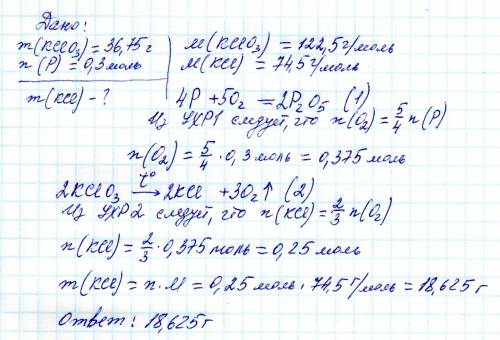 Дано:
m(KClO₃) = 36,75 г
n(P) = 0,3 моль
m(KCl) - ?
M(KClO₃) = 122,5 г/моль
M(KCl) = 74,5 г/моль
4P + 5O₂ = 2P₂O₅ (1)
Из УХР1 следует, что n(O₂) = 5/4 n(P)
n(O₂) = 5/4 · 0,3 моль = 0,375 моль
2KClO₃ t°→ 2KCl + 3O₂↑ (2)
Из УХР2 следует, что n(KCl) = 2/3 n(O₂)
n(KCl) = 2/3 · 0,375 моль = 0,25 моль
m(KCl) = n · M = 0,25 моль · 74,5 г/моль = 18,625 г
Ответ: 18,625 г